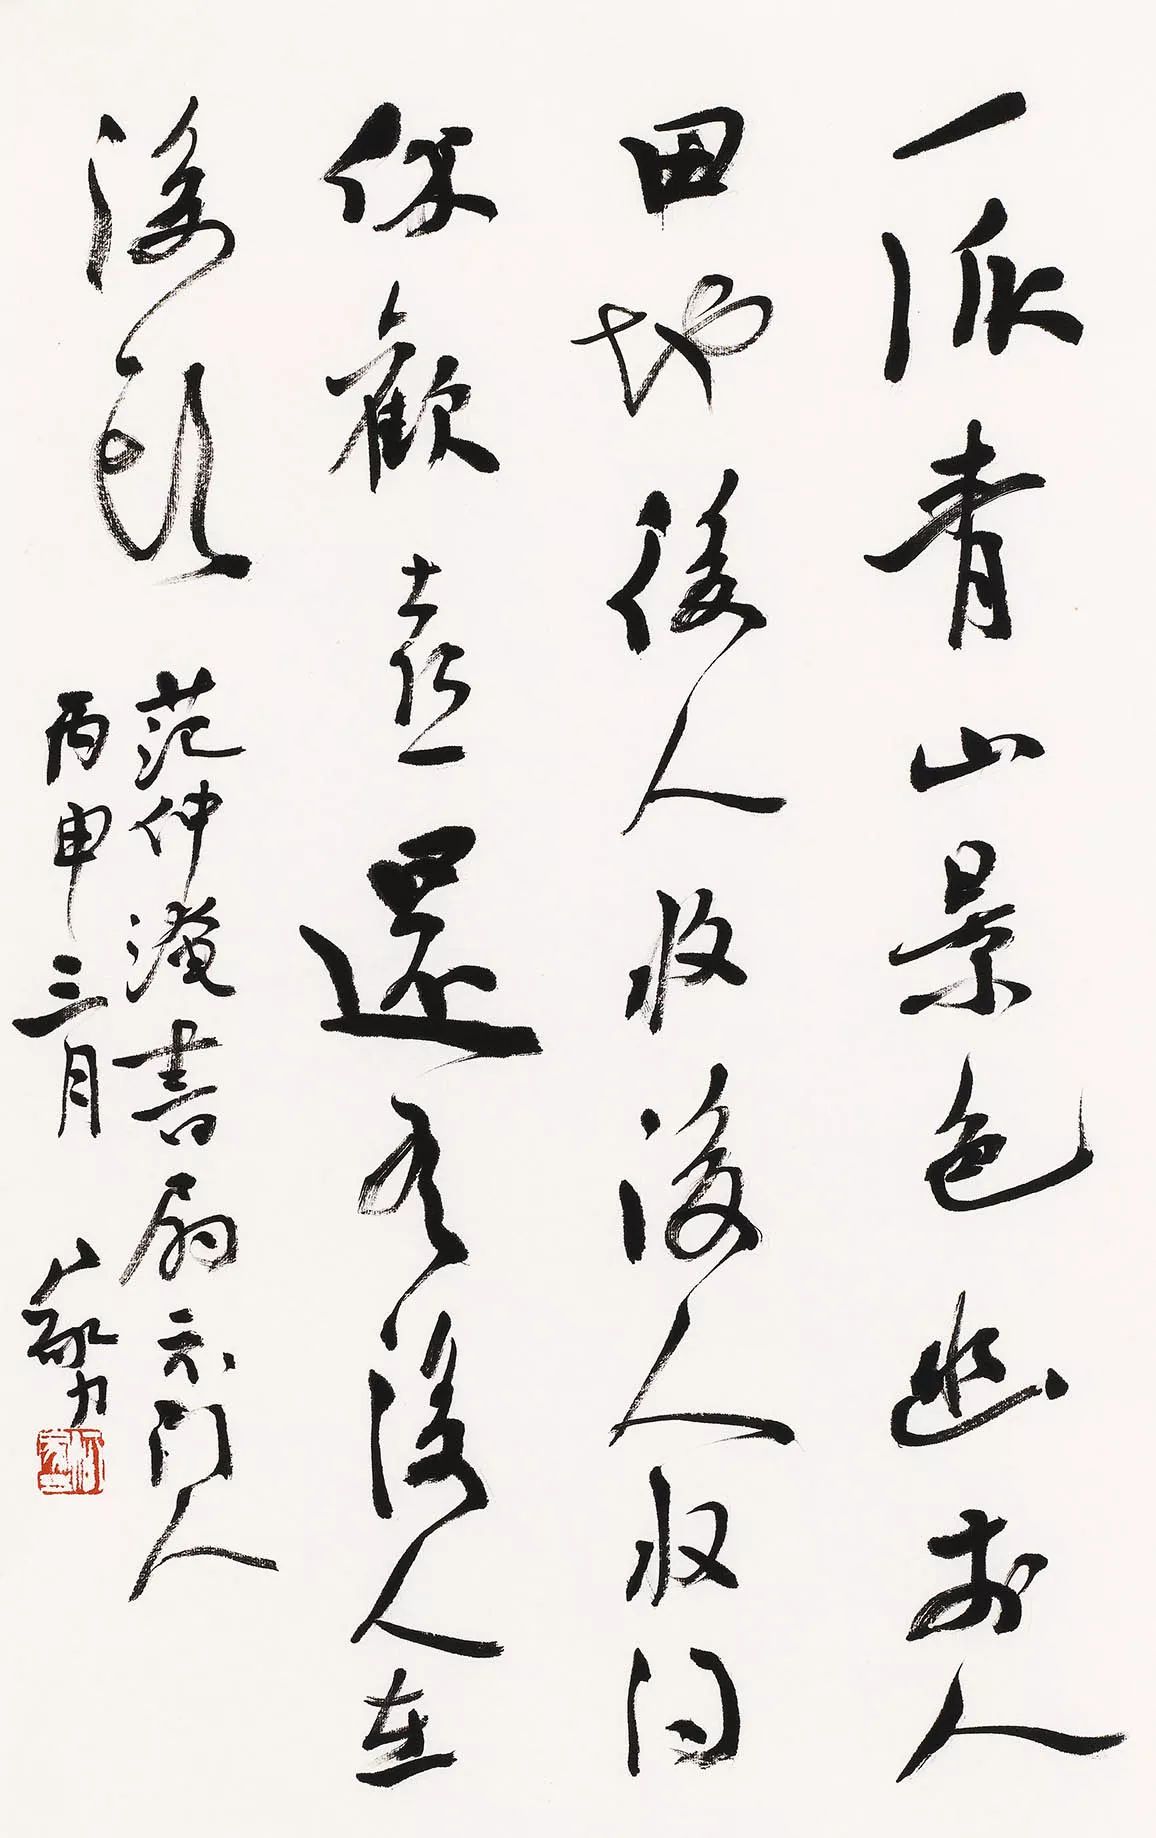 一派青山景色幽前人
田地後人收後人收得
休歡喜還有後人在
後頭
范仲淹書扇示門人
丙申三月